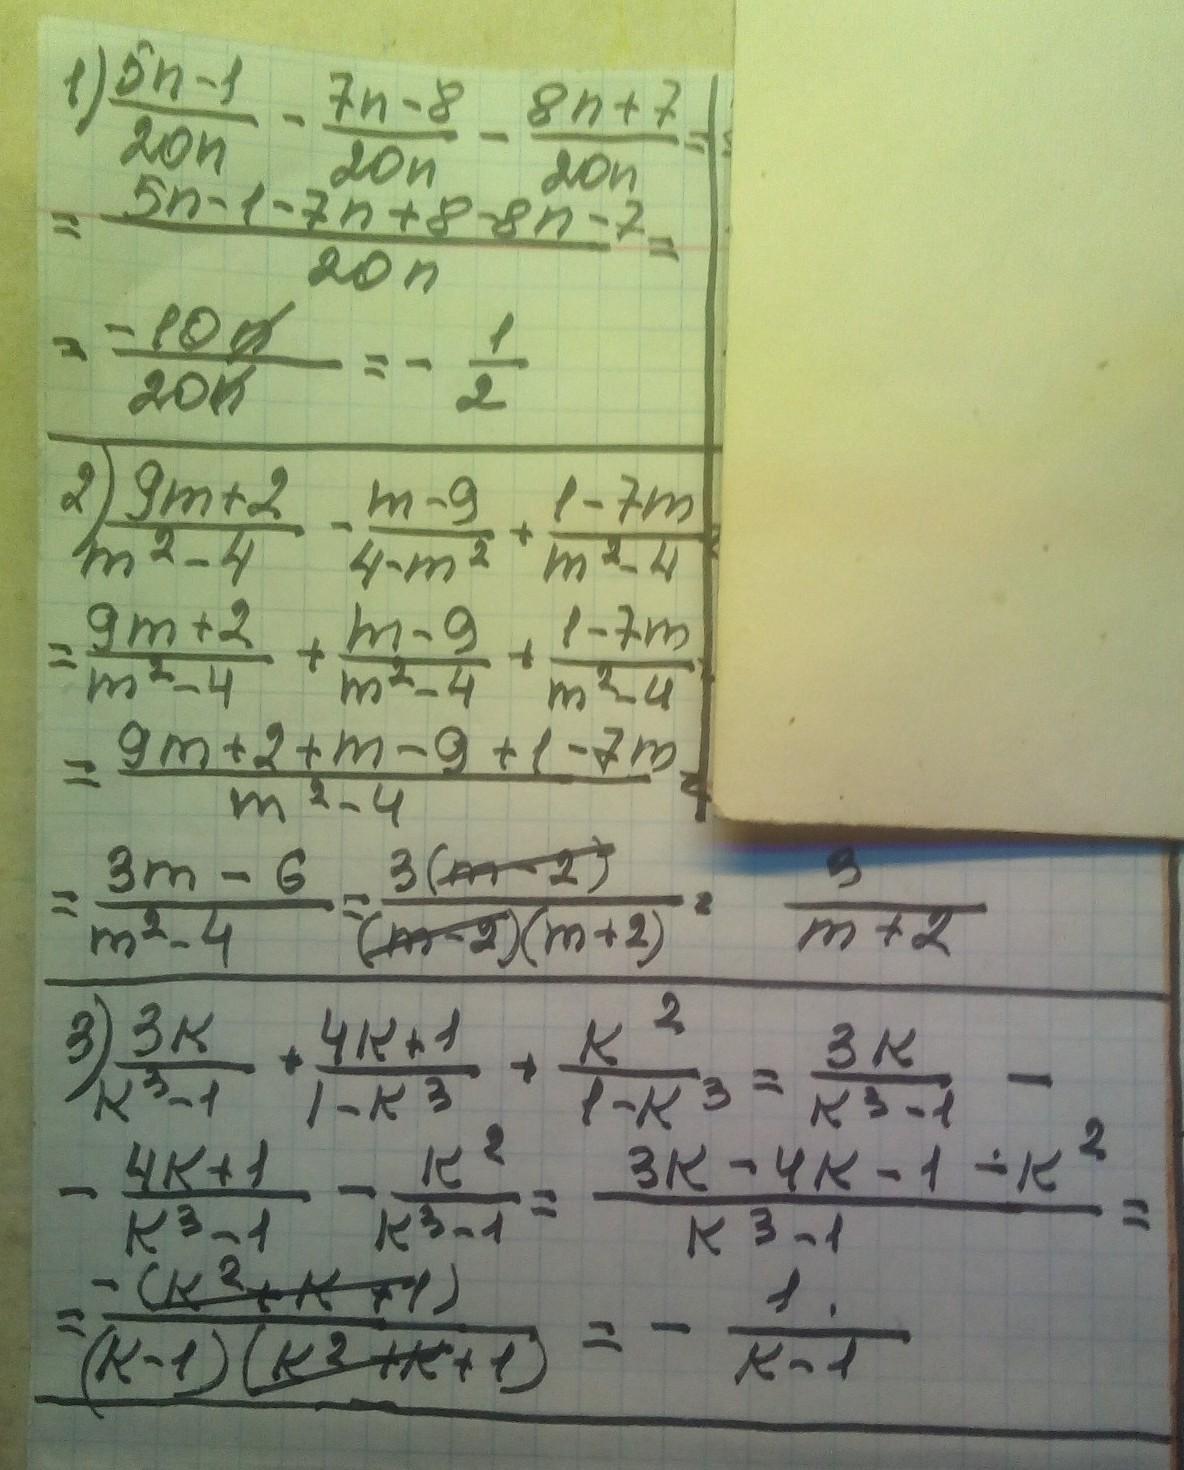 1) (5n-1)/(20n) - (7n-8)/(20n) - (8n+7)/(20n) =
= (5n-1-7n+8-8n-7)/(20n) =
= (-10n)/(20n) = - 1/2
2) (9m+2)/(m²-4) - (m-9)/(4-m²) + (1-7m)/(m²-4) =
= (9m+2)/(m²-4) + (m-9)/(m²-4) + (1-7m)/(m²-4) =
= (9m+2+m-9+1-7m)/(m²-4) =
= (3m-6)/(m²-4) = (3(m-2))/((m-2)(m+2)) = 3/(m+2)
3) (3k)/(k³-1) + (4k+1)/(1-k³) + (k²)/(1-k³) = (3k)/(k³-1) -
- (4k+1)/(k³-1) - (k²)/(k³-1) = (3k-4k-1-k²)/(k³-1) =
= (-(k²+k+1))/((k-1)(k²+k+1)) = - 1/(k-1)